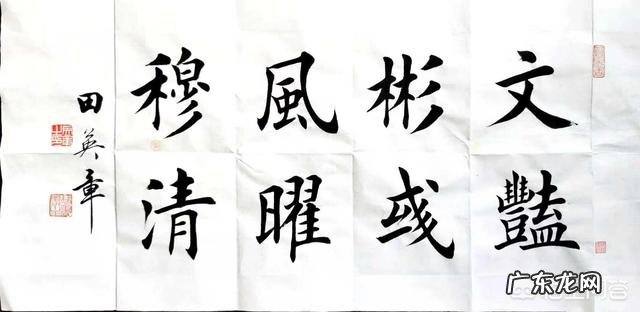 文豔
彬彧
風曜
穆清
田英章
广东龙网